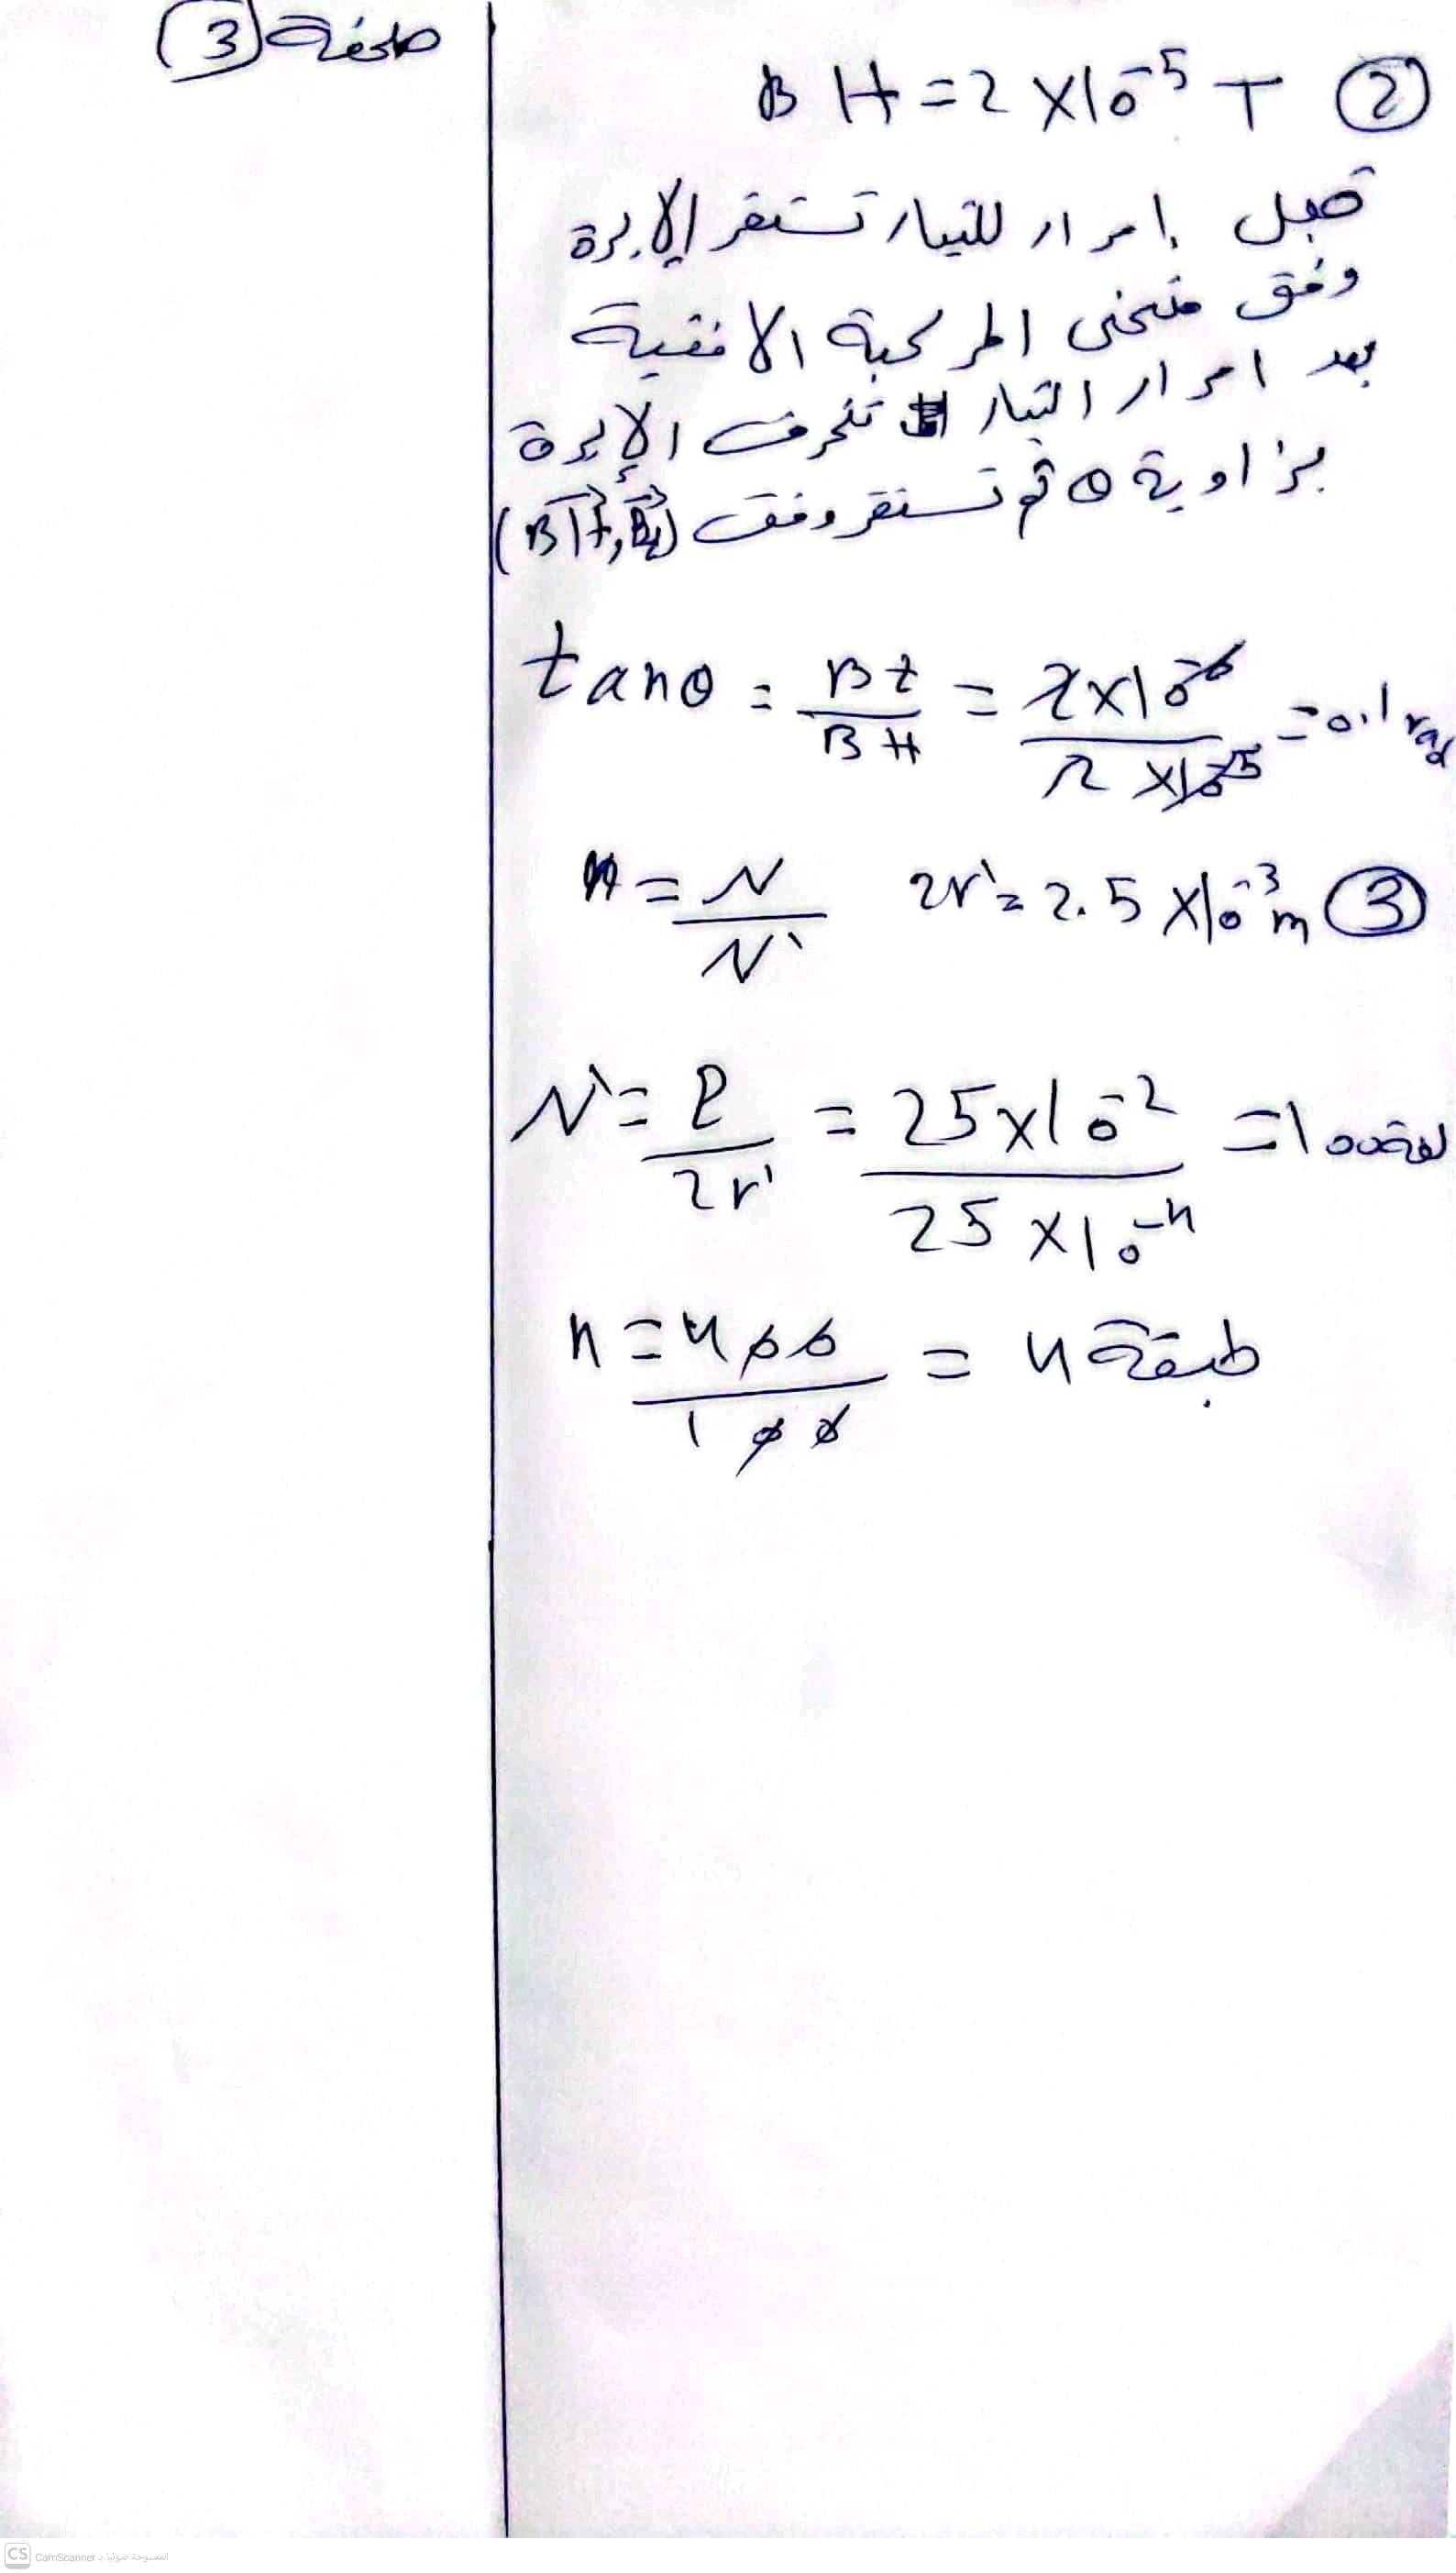 صفحة (3)
② BH = 2 × 10⁻⁵ T
قبل إمرار للتيار تستقر الإبرة
وفق منحى المركبة الافقية
بعد امرار التيار تنحرف الإبرة
بزاوية θ ثم تستقر وفق (BH, Bt)
tanθ = Bt / BH = 2×10⁻⁶ / 2×10⁻⁵ = 0.1 rad
③ 2r' = 2.5 × 10⁻³ m n = N / N'
N' = l / 2r' = 25×10⁻² / 25×10⁻⁴ = 100 لفة
n = 400 / 100 = 4 طبقة
CS CamScanner الممسوحة ضوئيا بـ